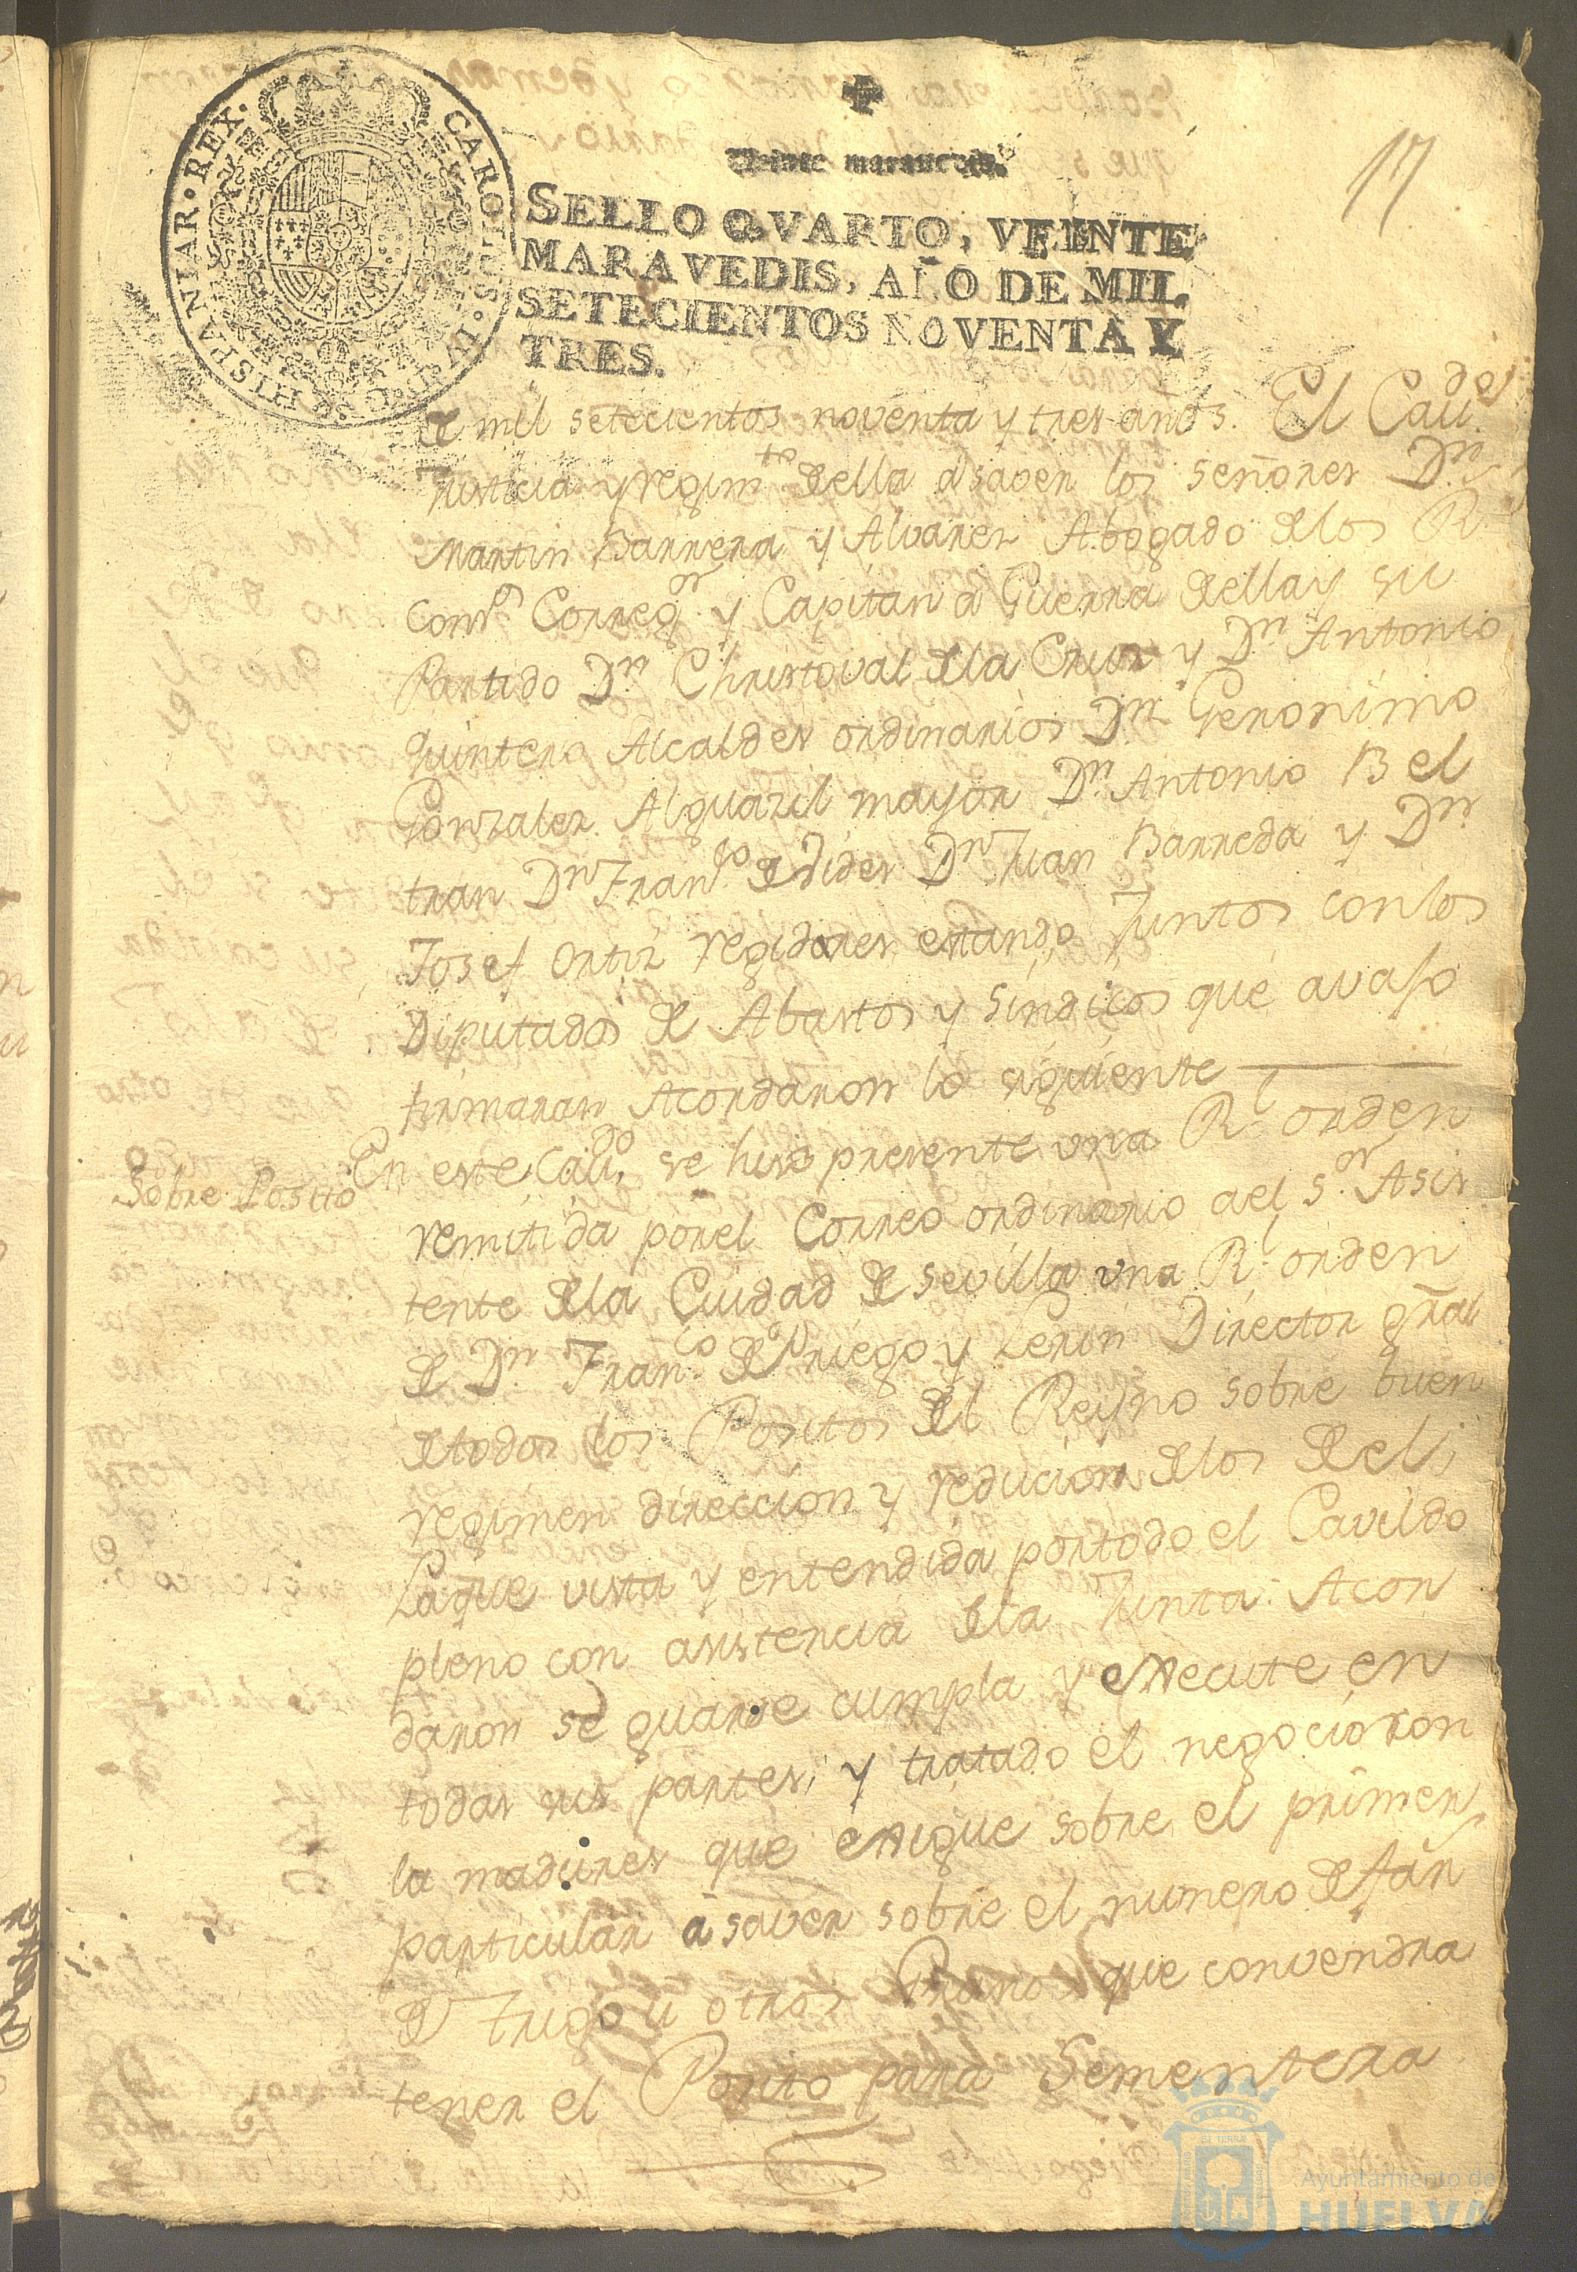 17
Veinte maravedis.
CAROLUS IV D G HISPANIAR REX
SELLO QVARTO, VEINTE
MARAVEDIS, AÑO DE MIL
SETECIENTOS NOVENTA Y
TRES.
de mil setecientos noventa y tres años. El Cau.do
Justicia y regim.to della a saver los señores Dn.
Martin Barrera y Alvarez Abogado de los R.s
Cons.os Correg.or y Capitan a Guerra della y su
Partido Dn. Christoval de la Cruz y Dn. Antonio
Quintero Alcaldes ordinarios Dn. Geronimo
Gonzalez Alguazil mayor Dn. Antonio Bel
tran Dn. Fran.co de Dider Dn. Juan Barreda y Dn.
Josef Ortiz regidores estando Juntos con los
Diputados de Abastos y Sindicos que avajo
firmaran Acordaron lo siguiente
Sobre Posito
En este Cau.do se hiso presente una R.l orden
remitida por el Correo ordinario del S.or Asis
tente de la Ciudad de Sevilla una R.l orden
de Dn. Fran.co de Priego y Lerin Director gñral
de todos los Positos del Reyno sobre buen
regimen direccion y reducion de los del;
La que vista y entendida por todo el Cavildo
pleno con asistencia de la Junta Acor
daron se guarde cumpla y execute en
todas sus partes; y tratado el negocio con
la madures que exigue sobre el primer
particular a saver sobre el numero de fan
de Trigo u otros Granos que convendra
tener el Posito para Sementera
Ayuntamiento de
HUELVA